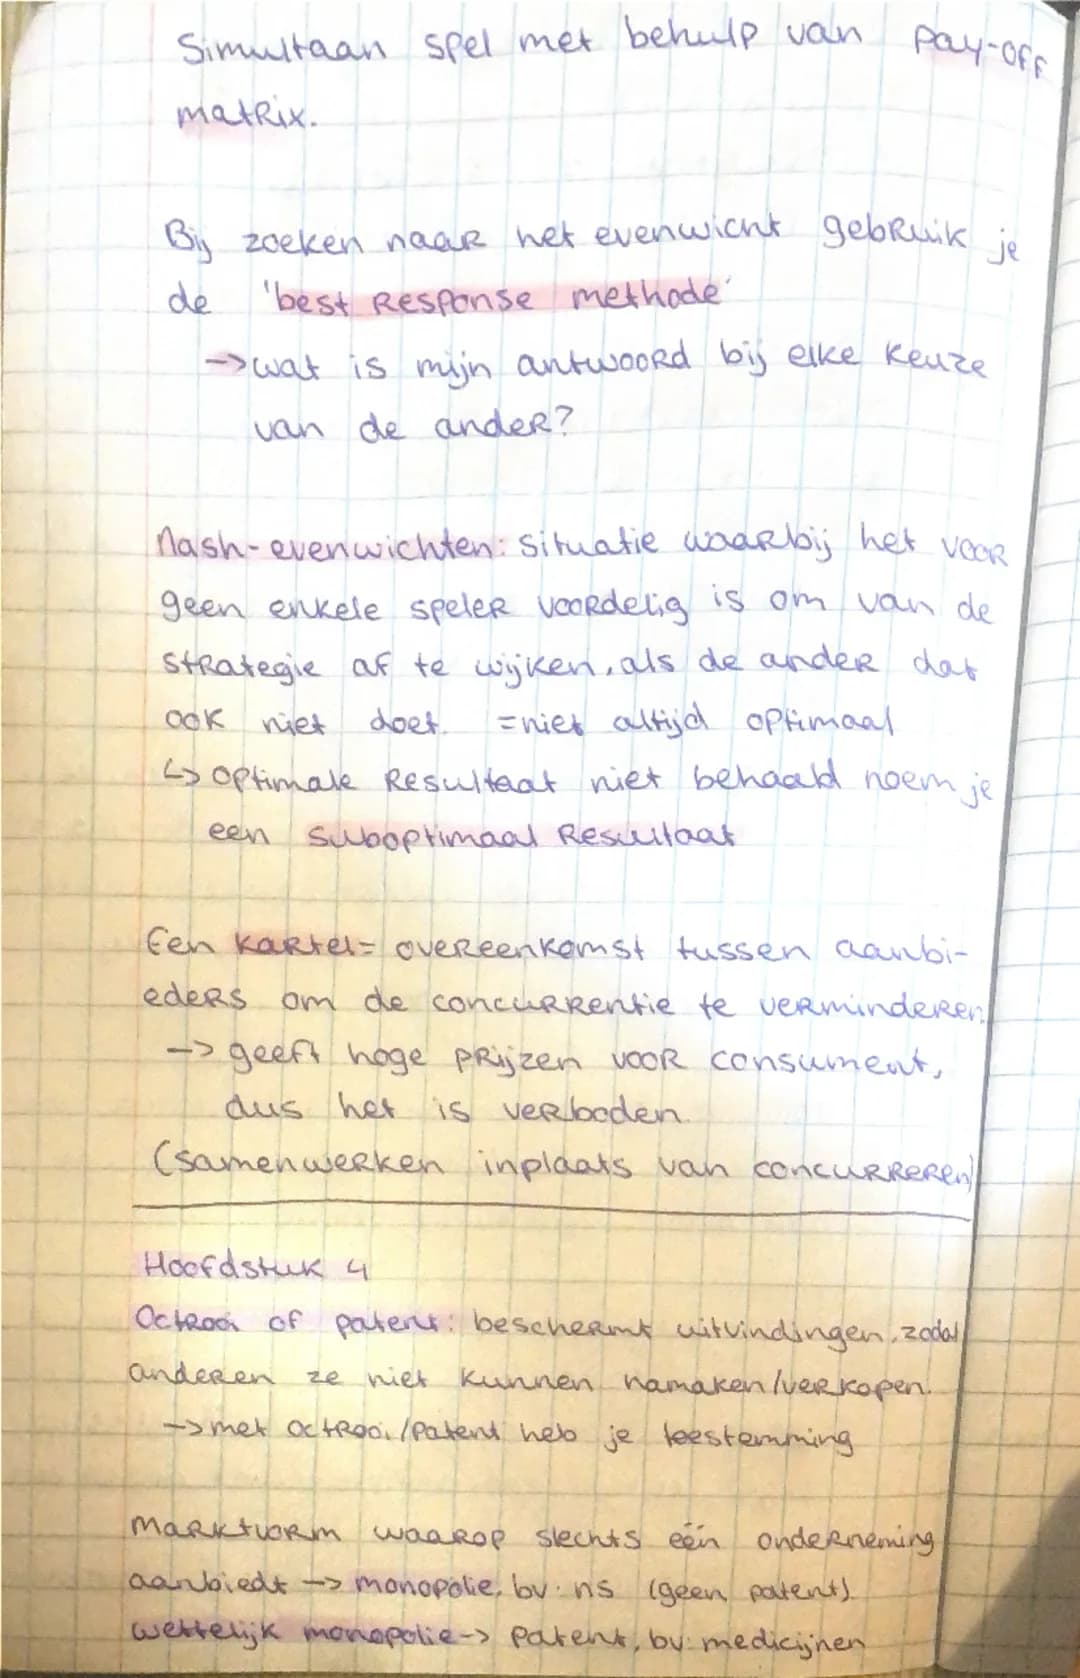 Simultaan spel met behulp van pay-off
matrix.
Bij zoeken naar het evenwicht gebruik je
de 'best Response methode'
-> wat is mijn antwoord bij elke keuze
van de ander?
Nash-evenwichten: situatie waarbij het voor
geen enkele speler voordelig is om van de
strategie af te wijken, als de ander dat
ook niet doet. =niet altijd optimaal
↳ optimale Resultaat niet behaald noem je
een suboptimaal Resultaat
Een kartel= overeenkomst tussen aanbi-
eders om de concurrentie te verminderen.
-> geeft hoge prijzen voor consument,
dus het is verboden.
(samenwerken inplaats van concurreren)
Hoofdstuk 4
Octrooi of patent: beschermt uitvindingen, zodat
anderen ze niet kunnen namaken/verkopen.
-> met octrooi/patent heb je toestemming
Marktvorm waarop slechts één onderneming
aanbiedt -> monopolie, bv: ns (geen patent)
wettelijk monopolie -> patent, bv: medicijnen